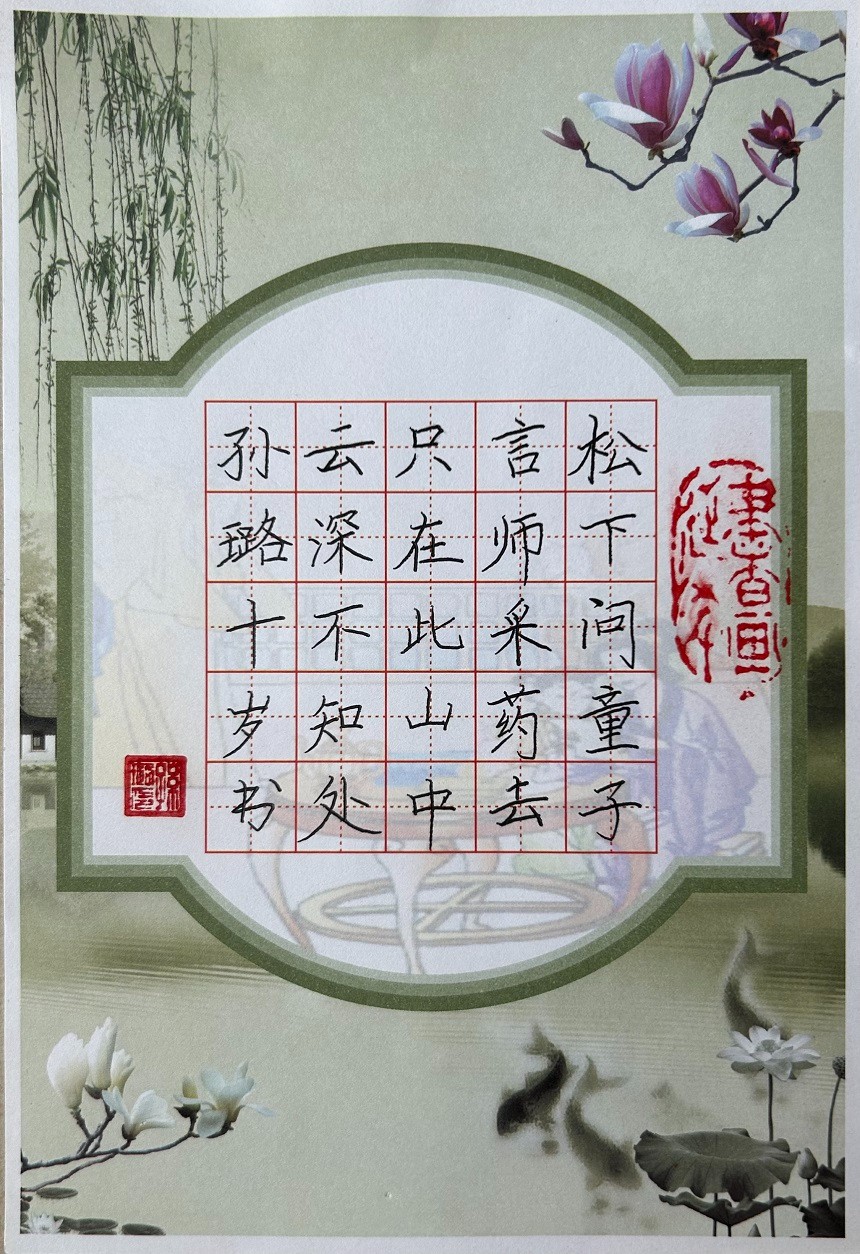 松下问童子
言师采药去
只在此山中
云深不知处
孙璐十岁书